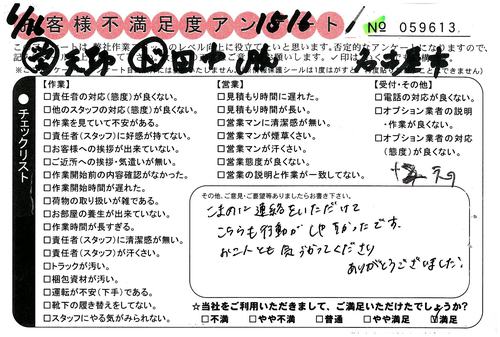 1/26 お客様不満足度アンケート! 1516
№ 059613
このアンケートは、弊社作業
天野 田中 名古屋市
●チェックリスト
【作業】
□責任者の対応(態度)が良くない。
□他のスタッフの対応(態度)が良くない。
□作業を見ていて不安がある。
□責任者(スタッフ)に好感が持てない。
□お客様への挨拶が出来ていない。
□ご近所への挨拶・気遣いが無い。
□作業開始前の内容確認がなかった。
□作業開始時間が遅れた。
□荷物の取り扱いが雑である。
□お部屋の養生が出来ていない。
□作業時間が長すぎる。
□責任者(スタッフ)に清潔感が無い。
□責任者(スタッフ)が汗くさい。
□トラックが汚い。
□梱包資材が汚い。
□運転が不安(下手)である。
□靴下の履き替えをしてない。
□スタッフにやる気がみられない。
【営業】
□見積もり時間に遅れた。
□見積もり時間が長い。
□営業マンに清潔感が無い。
□営業マンが煙草くさい。
□営業マンが汗くさい。
□営業態度が良くない。
□営業の説明と作業が一致してない。
【受付・その他】
□電話の対応が良くない。
□オプション業者の説明
・作業が良くない。
□オプション業者の対応
(態度)が良くない。
その他、ご意見・ご要望等ありましたらお書き下さい。
こまめに連絡をいただけて
こちらも行動がしやすかったです。
お二人とも気づかってくださり
ありがとうございました。
☆当社をご利用いただきまして、ご満足いただけたでしょうか?
□不満 □やや不満 □普通 □やや満足 ☑満足